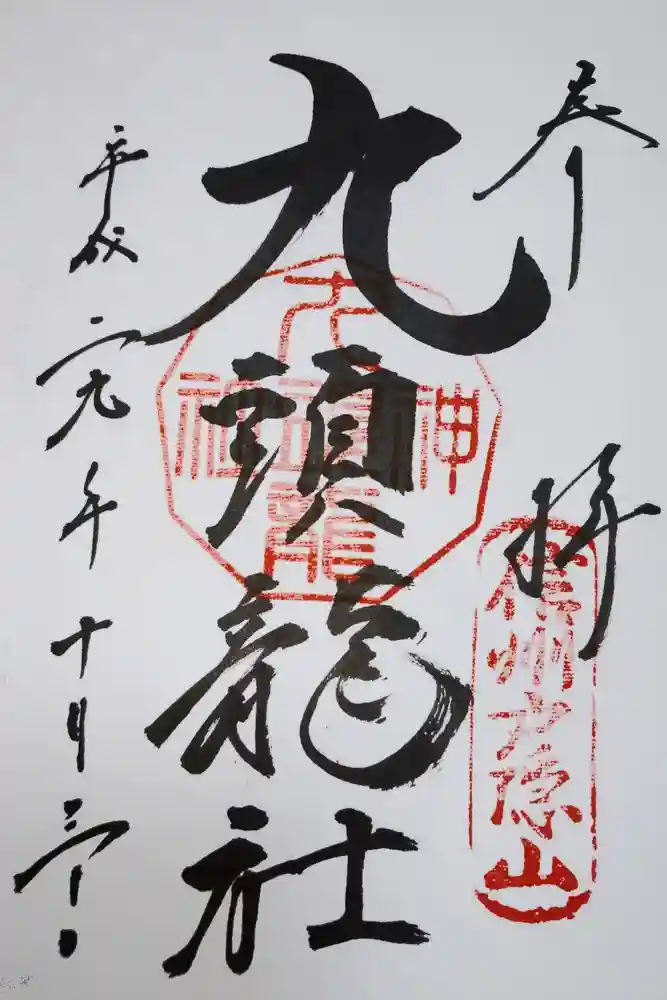 奉拝
信州戸隠山
九頭龍社
九頭龍神社
平成二十九年十月三十日